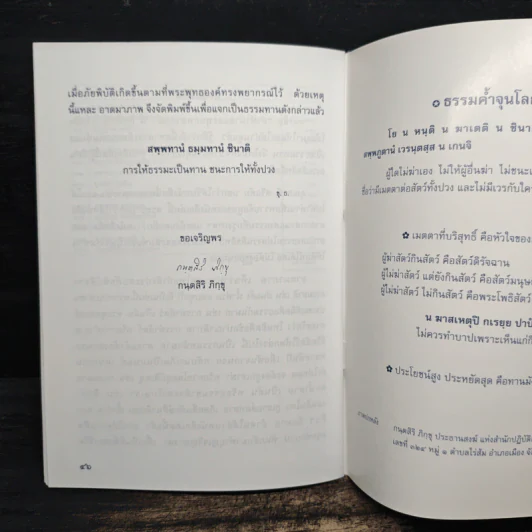 เมื่อภัยพิบัติเกิดขึ้นตามที่พระพุทธองค์ทรงพยากรณ์ไว้ ด้วยเหตุ
นี้แหละ อาตมาภาพ จึงจัดพิมพ์ขึ้นเพื่อแจกเป็นธรรมทานดังกล่าวแล้ว
สพฺพทานํ ธมฺมทานํ ชินาติ
การให้ธรรมะเป็นทาน ชนะการให้ทั้งปวง
ขุ.ธ.
ขอเจริญพร
กนฺตสิริ ภิกฺขุ
กนฺตสิริ ภิกฺขุ
๔๖
๏ ธรรมค้ำจุนโล
โย น หนฺติ น ฆาเตติ น ชินา
สพฺพภูตานํ เวรนฺตสฺส น เกนจิ
ผู้ใดไม่ฆ่าเอง ไม่ให้ผู้อื่นฆ่า ไม่ชนะเ
ชื่อว่ามีเมตตาต่อสัตว์ทั้งปวง และไม่มีเวรกับใค
✿ เมตตาที่บริสุทธิ์ คือหัวใจของ
ผู้ฆ่าสัตว์กินสัตว์ คือสัตว์ดิรัจฉาน
ผู้ไม่ฆ่าสัตว์ แต่ยังกินสัตว์ คือสัตว์มนุษย
ผู้ไม่ฆ่าสัตว์ ไม่กินสัตว์ คือพระโพธิสัตว์
น ฆาสเหตุปิ กเรยฺย ปาปํ
ไม่ควรทำบาปเพราะเห็นแก่กิ
✿ ประโยชน์สูง ประหยัดสุด คือทานมั
กนฺตสิริ ภิกฺขุ ประธานสงฆ์ แห่งสำนักปฏิบัติ
เลขที่ ๑๒๔ หมู่ ๑ ตำบลไร่ส้ม อำเภอเมือง จั